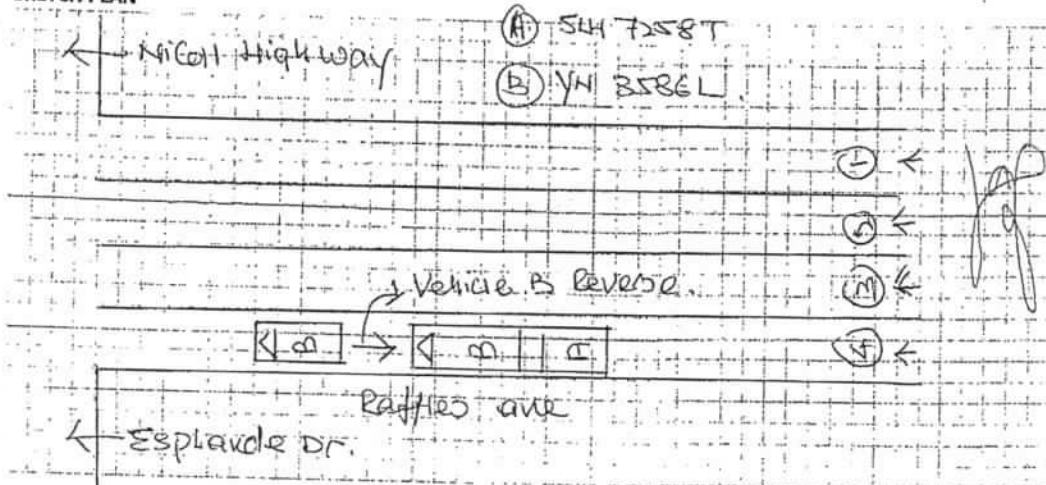 Nicoll Highway
Ⓐ SLH 7258T
Ⓑ YN 3586L.
①
②
③
Vehicle B Reverse.
B
B A
④
Raffles ave
Esplande Dr.